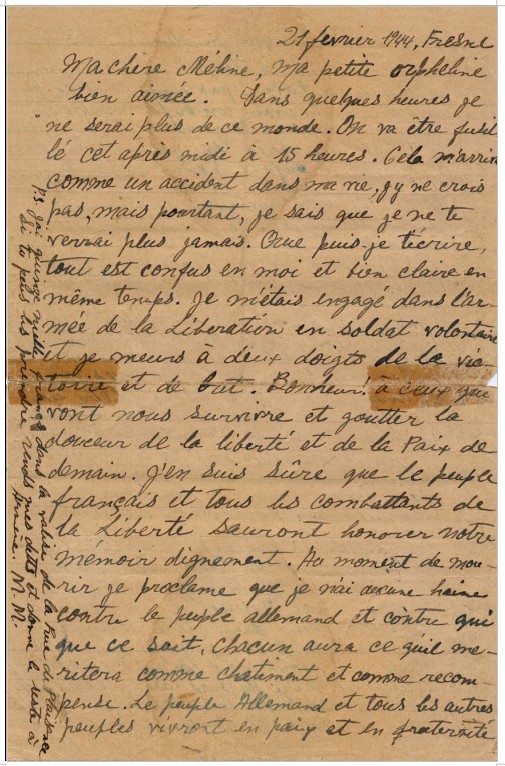 21 fevrier 1944, Fresne
Ma chère Méline, ma petite orpheline
bien aimée. Dans quelques heures je
ne serai plus de ce monde. On va être fusil
lé cet après midi à 15 heures. Cela m'arrive
comme un accident dans ma vie, j'y ne crois
pas, mais pourtant, je sais que je ne te
verrai plus jamais. Que puis-je t'écrire,
tout est confus en moi et bien claire en
même temps. Je m'étais engagé dans l'ar-
mée de la Libération en soldat volontaire
et je meurs à deux doigts de la vic-
toire et de but. Bonheur! à ceux qui
vont nous survivre et goutter la
douceur de la liberté et de la Paix de
demain. J'en suis sûre que le peuple
français et tous les combattants de
la Liberté sauront honorer notre
memoir dignement. Au moment de mou-
rir je proclame que je n'ai aucune haine
contre le peuple allemand et contre qui
que ce soit, chacun aura ce qu'il me-
ritera comme chatiment et comme recom-
pense. Le peuple Allemand et tous les autres
peuples vivront en paix et en fraternité
P.S. J'ai quinze mille francs dans la valise de la Rue de Plaisance
Si tu peus les prendre rends mes dettes et donne le reste à
Armène. M. M.